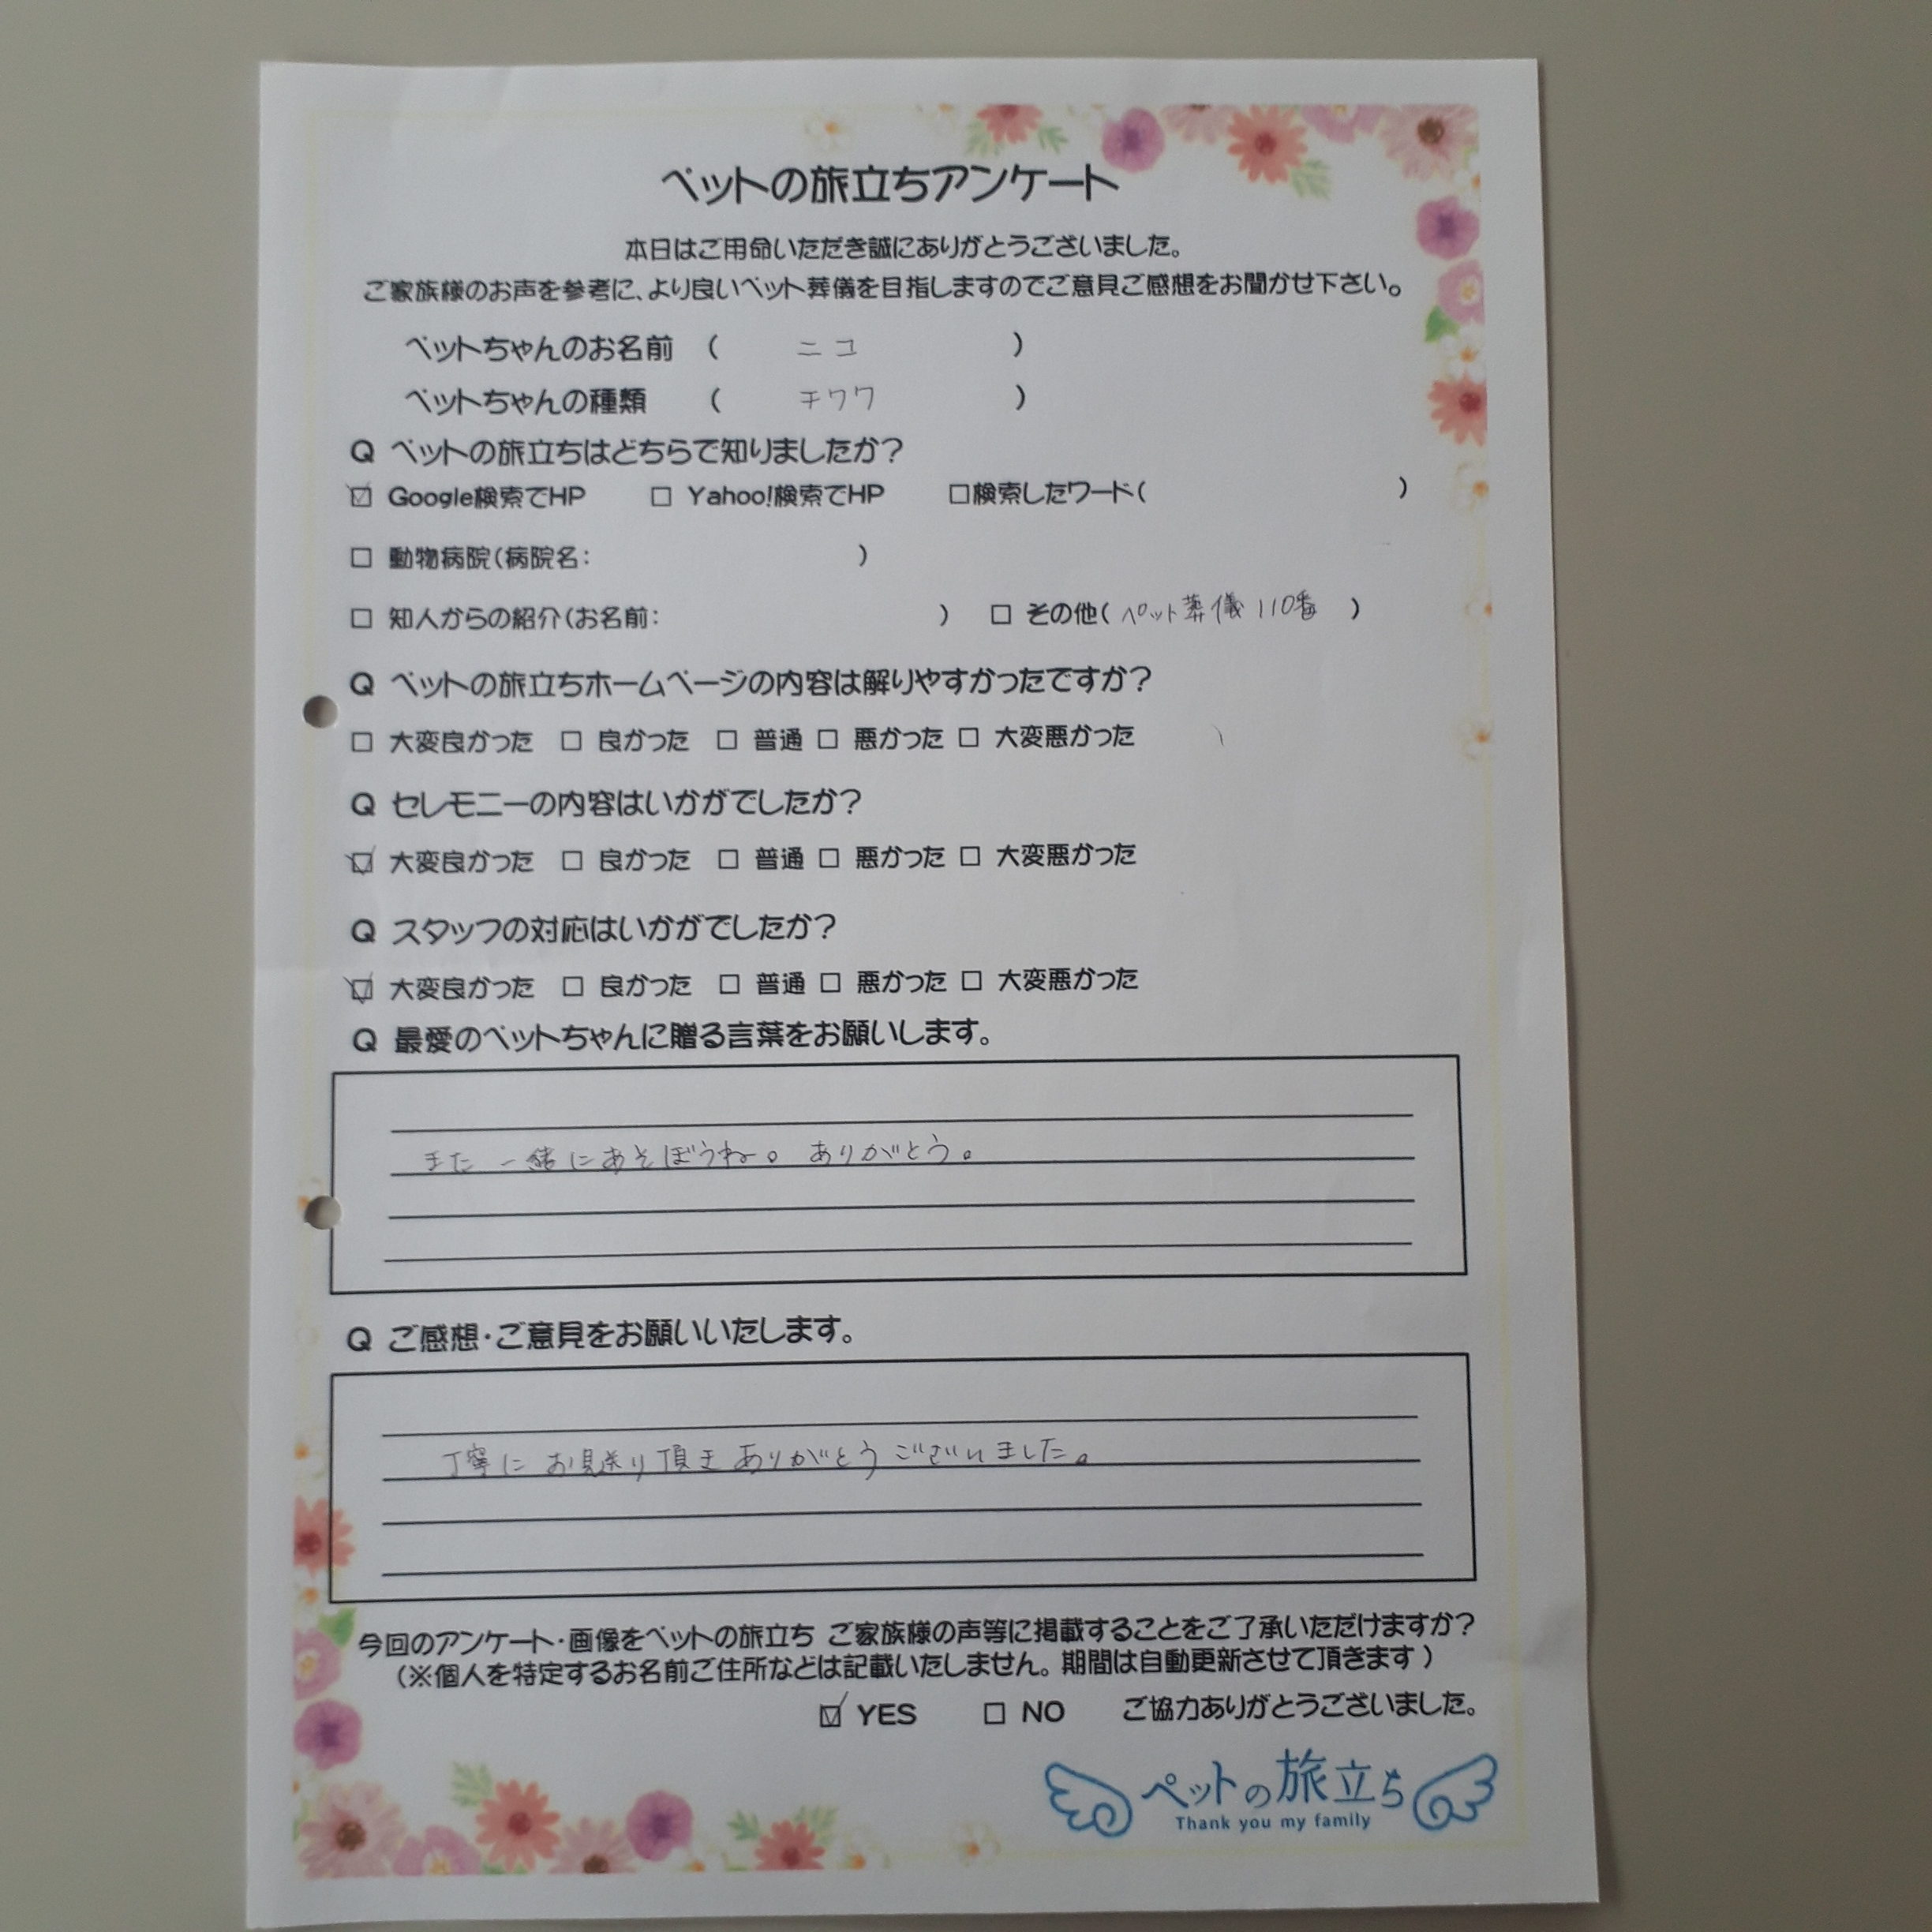 ペットの旅立ちアンケート
本日はご用命いただき誠にありがとうございました。
ご家族様のお声を参考に、より良いペット葬儀を目指しますのでご意見ご感想をお聞かせ下さい。
ペットちゃんのお名前 ( ニコ )
ペットちゃんの種類 ( チワワ )
Q ペットの旅立ちはどちらで知りましたか?
☑ Google検索でHP □ Yahoo!検索でHP □検索したワード( )
□ 動物病院(病院名: )
□ 知人からの紹介(お名前: ) □ その他( ペット葬儀110番 )
Q ペットの旅立ちホームページの内容は解りやすかったですか?
□ 大変良かった □ 良かった □ 普通 □ 悪かった □ 大変悪かった
Q セレモニーの内容はいかがでしたか?
☑ 大変良かった □ 良かった □ 普通 □ 悪かった □ 大変悪かった
Q スタッフの対応はいかがでしたか?
☑ 大変良かった □ 良かった □ 普通 □ 悪かった □ 大変悪かった
Q 最愛のペットちゃんに贈る言葉をお願いします。
また一緒にあそぼうね。ありがとう。
Q ご感想・ご意見をお願いいたします。
丁寧にお見送り頂きありがとうございました。
今回のアンケート・画像をペットの旅立ち ご家族様の声等に掲載することをご了承いただけますか?
(※個人を特定するお名前ご住所などは記載いたしません。期間は自動更新させて頂きます)
☑ YES □ NO ご協力ありがとうございました。
ペットの旅立ち
Thank you my family